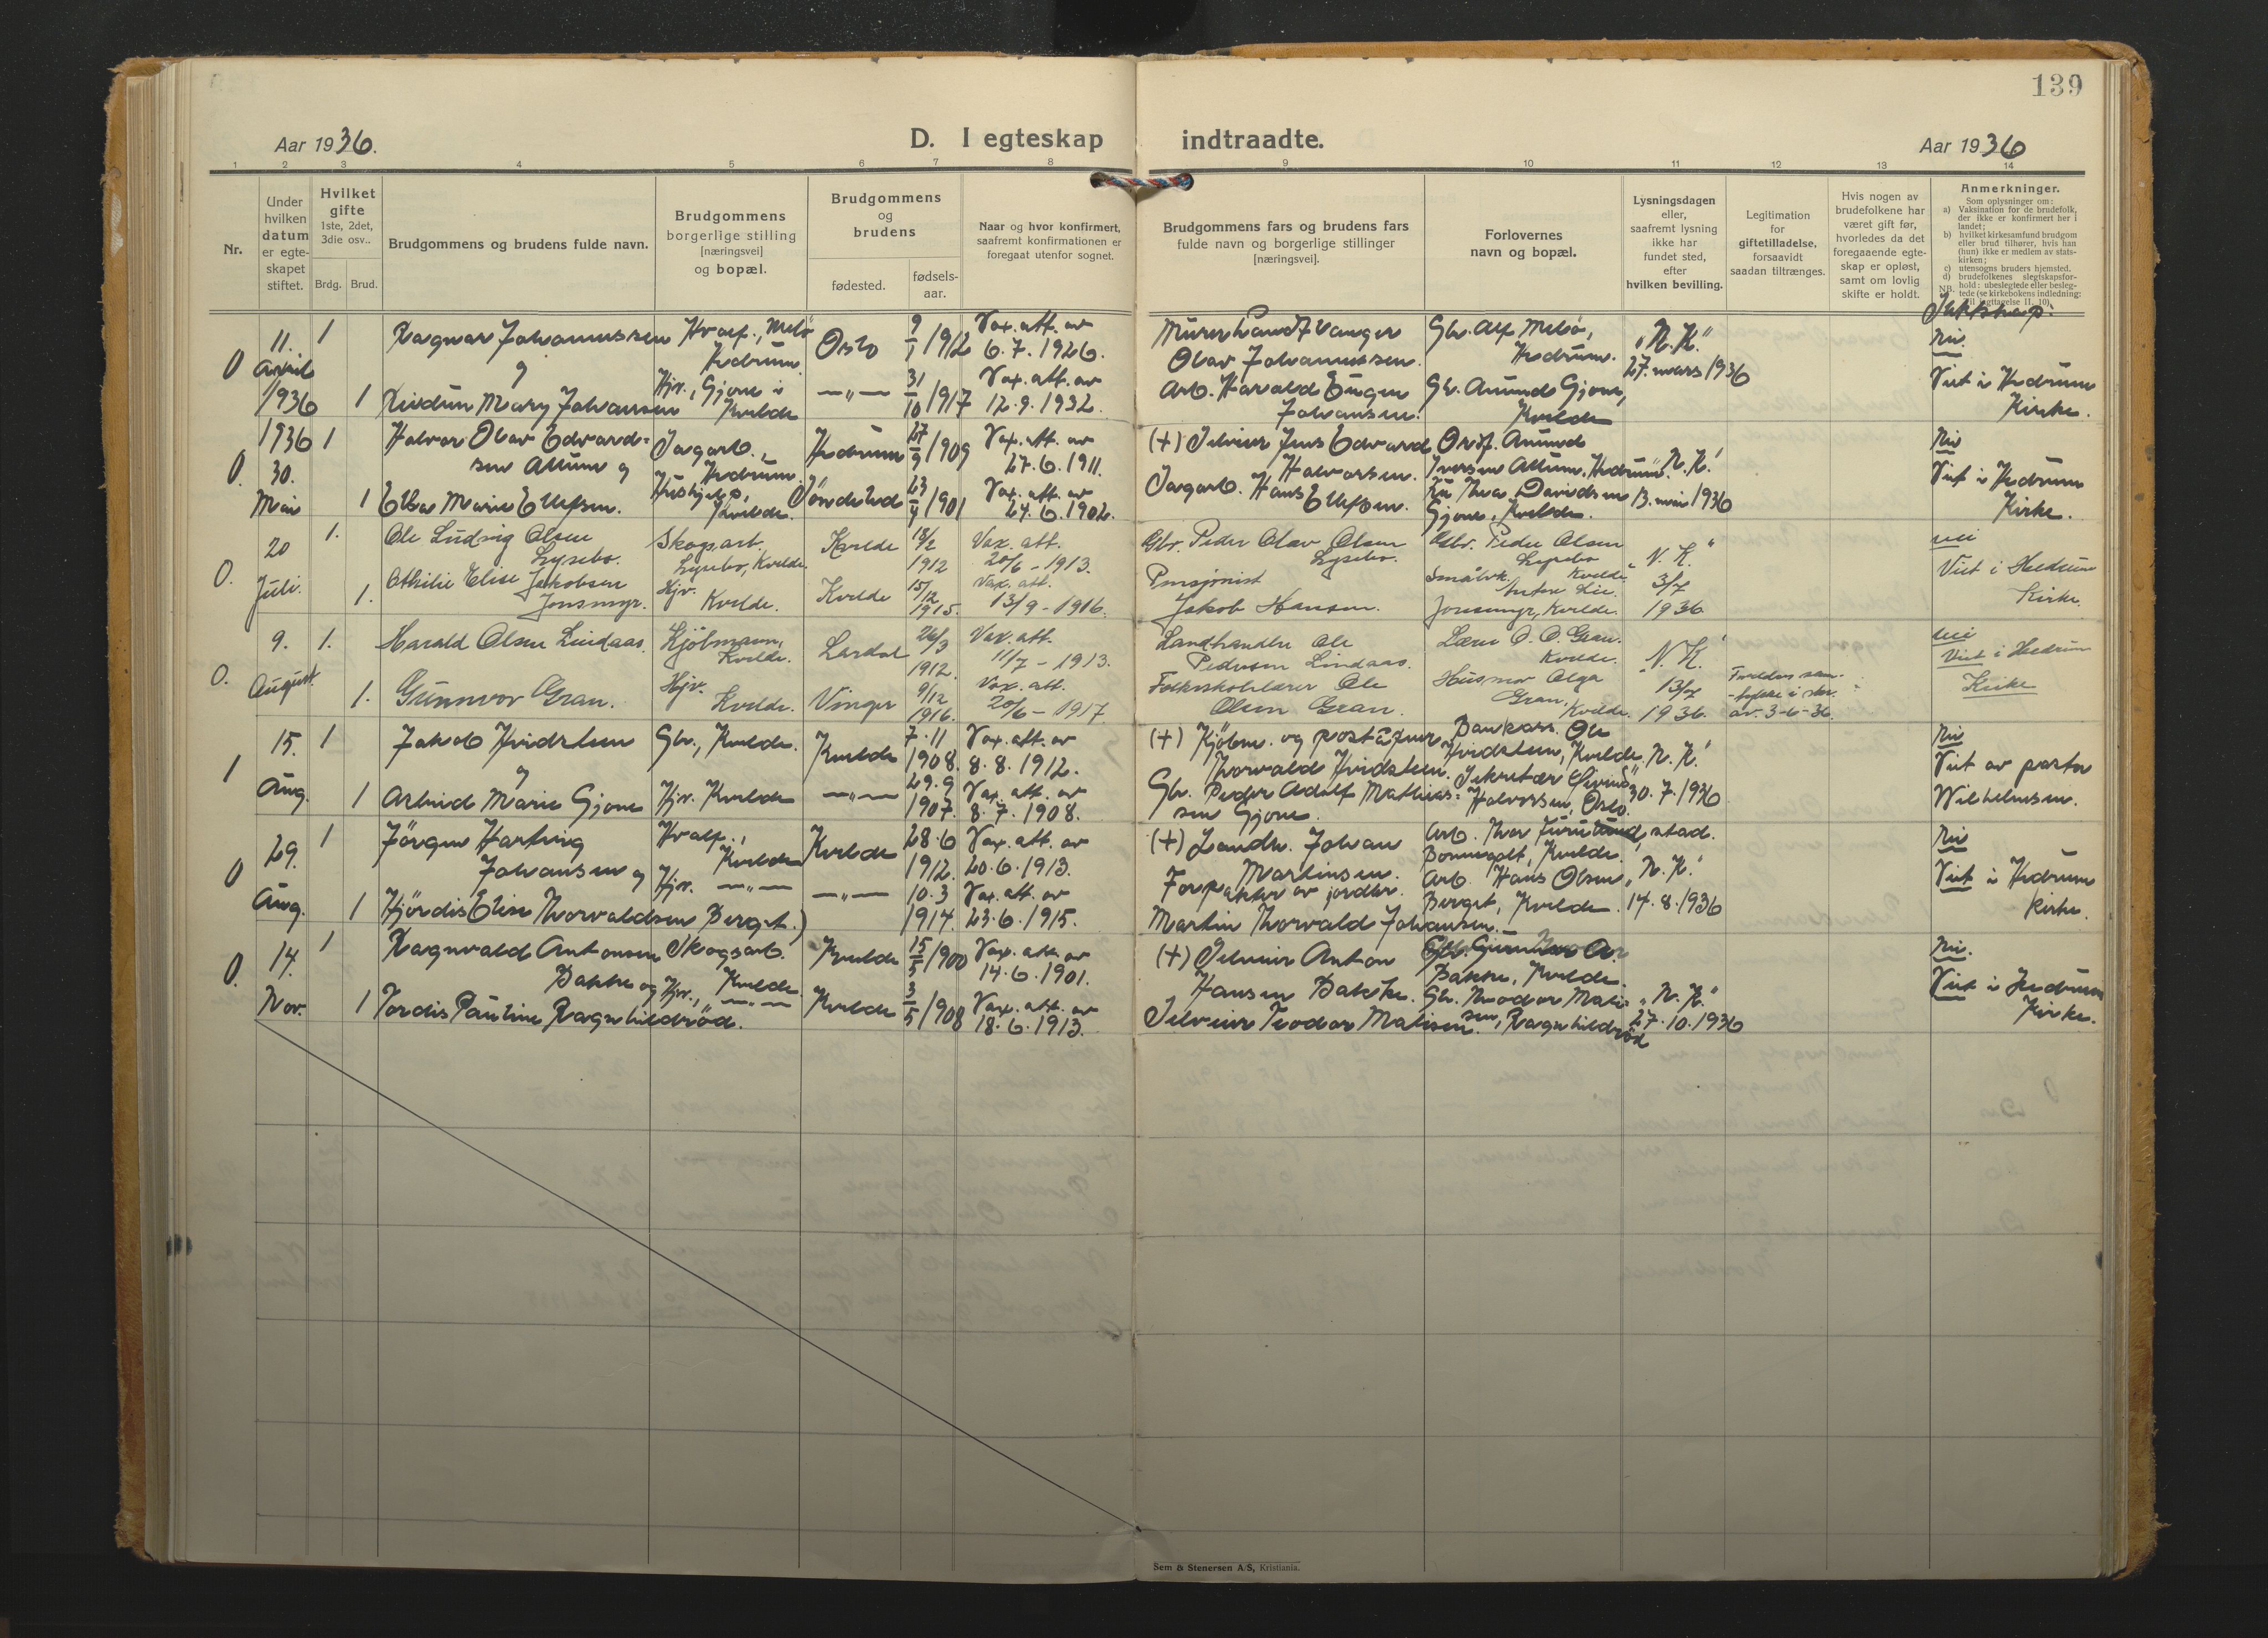 139
Aar 1936.
D. I egteskap indtraadte.
Aar 1936
1 2 3 4 5 6 7 8 9 10 11 12 13 14
Nr.
Under hvilken datum er egteskapet stiftet.
Hvilket gifte 1ste, 2det, 3die osv..
Brdg. Brud.
Brudgommens og brudens fulde navn.
Brudgommens borgerlige stilling [næringsvei] og bopæl.
Brudgommens og brudens
fødested.
fødsels-aar.
Naar og hvor konfirmert, saafremt konfirmationen er foregaat utenfor sognet.
Brudgommens fars og brudens fars fulde navn og borgerlige stillinger [næringsvei].
Forlovernes navn og bopæl.
Lysningsdagen eller, saafremt lysning ikke har fundet sted, efter hvilken bevilling.
Legitimation for giftetilladelse, forsaavidt saadan tiltrænges.
Hvis nogen av brudefolkene har været gift før, hvorledes da det foregaaende egteskap er opløst, samt om lovlig skifte er holdt.
Anmerkninger.
Som oplysninger om:
a) Vaksination for de brudefolk, der ikke er konfirmert her i landet;
b) hvilket kirkesamfund brudgom eller brud tilhører, hvis han (hun) ikke er medlem av statskirken;
c) utensogns bruders hjemsted.
d) brudefolkenes slegtskapsforhold: ubeslegtede eller beslegtede (se kirkebokens indledning:
0 11. april 1936
1 Ragnar Johannessen Hvalf., Melø Hedrum Oslo 9/1 1912 Vax. att. av 6.7.1926.
Olav Johannessen. Gbr. Alf Melø, Hedrum. "N.K." 27. mars 1936 Nei.
og
1 Mary Johansen Hjv., Gjone i Kvelde —"— 31/10 1917 Vax. att. av 12.9.1932.
Arb. Harald Eugen Johansen. Gb. Anund Gjone, Kvelde Viet i Hedrum Kirke.
0. 1936 30. Mai
1 Halvor Olav Edvardsen Allum og Jagarb., Hedrum. Hedrum 27/9 1909 Vax. att. av 27.6.1911.
(+) Selveier Jens Edvard Halvorsen. Anund Iversen Allum, Hedrum "N.K." 13. mai 1936 Nei
1 Elsa Marie Ellefsen. Hushjelp, Kvelde. 23/4 1901 Vax. att. av 24.6.1902.
Jagarb. Hans Ellefsen. Davidsen Gjone, Kvelde. Viet i Hedrum Kirke.
0. 20 Juli.
1. Ole Ludvig Olsen Lysebo. Skogsarb. Lysebo, Kvelde. Kvelde 18/2 1912 Vax. att. 20/6 - 1913.
Gbr. Peder Olav Olsen Lysebo. Gbr. Peder Olsen Lysebo Kvelde "N.K." 3/7 1936 nei
1. Othilie Elise Jakobsen Jonsmyr. Hjv. Kvelde. Kvelde 15/12 1915. Vax. att. 13/9 - 1916.
Pensjonist Jakob Hansen. Småbrk. Anton Lie. Jonsmyr, Kvelde. Viet i Hedrum Kirke.
0. 9. August.
1. Harald Olsen Lindaas. Kjøbmann, Kvelde. Lardal 26/3 1912. Vax. att. 11/7 - 1913.
Landhandler Ole Pedersen Lindaas. Lærer O. O. Gran. Kvelde. "N.K." 13/7 1936. nei
1. Gunnvor Gran. Hjv. Kvelde. Vinger 9/12 1916. Vax. att. 20/6 - 1917
Folkeskolelærer Ole Olsen Gran. Husmor Olga Gran, Kvelde. Foreldres sam-tykke i skr. av. 3-6-36. Viet i Hedrum Kirke
1 15. Aug.
1 Jakob Hvidsteen Gbr., Kvelde. Kvelde 7.11 1908. Vax. att. av 8.8.1912.
(+) Kjøbm. og poståpner Thorvald Hvidsteen. Bankkass. Ole Hvidsteen, Kvelde "N.K." 30.7.1936 Nei
og
1 Arbvid Marie Gjone Hjv. Kvelde —"— 29.9 1907. Vax. att. av 8.7.1908.
Gbr. Peder Adolf Mathias-sen Gjone. Sekretær Halvorsen, Oslo. Viet av pastor Wilhelmsen.
0 29. Aug.
1 Jørgen Hartvig Johansen og Hvalf., Kvelde Kvelde 28.6 1912. Vax. att. av 20.6.1913.
(+) Landbr. Johan Martinsen. Arb. Thor Furustad. Bommvadt, Kvelde. "N.K." 14.8.1936 Nei
1 Hjørdis Elise Thorvaldsen Berget.) Hjv. —"— —"— 10.3 1914. Vax. att. av 23.6.1915.
Forpakter av jordbr. Martin Thorvald Johansen. Arb. Hans Olsen Berget, Kvelde. Viet i Hedrum Kirke.
0. 14. Nov.
1 Ragnvald Antonsen Bakke og Skogsarb. Kvelde. Kvelde 15/5 1900 Vax. att. av 14.6.1901.
(+) Selveier Anton Hansen Bakke. Bakke, Kvelde. "N.K." 27.10.1936 Nei.
1 Tordis Pauline Ragnhildrød. Hjv., —"— Kvelde 3/5 1908 Vax. att. av 18.6.1913.
Selveier Teodor Matisen. Gbr. Theodor Matissen, Ragnhildrød Viet i Hedrum Kirke.
Sem & Stenersen A/S, Kristiania.